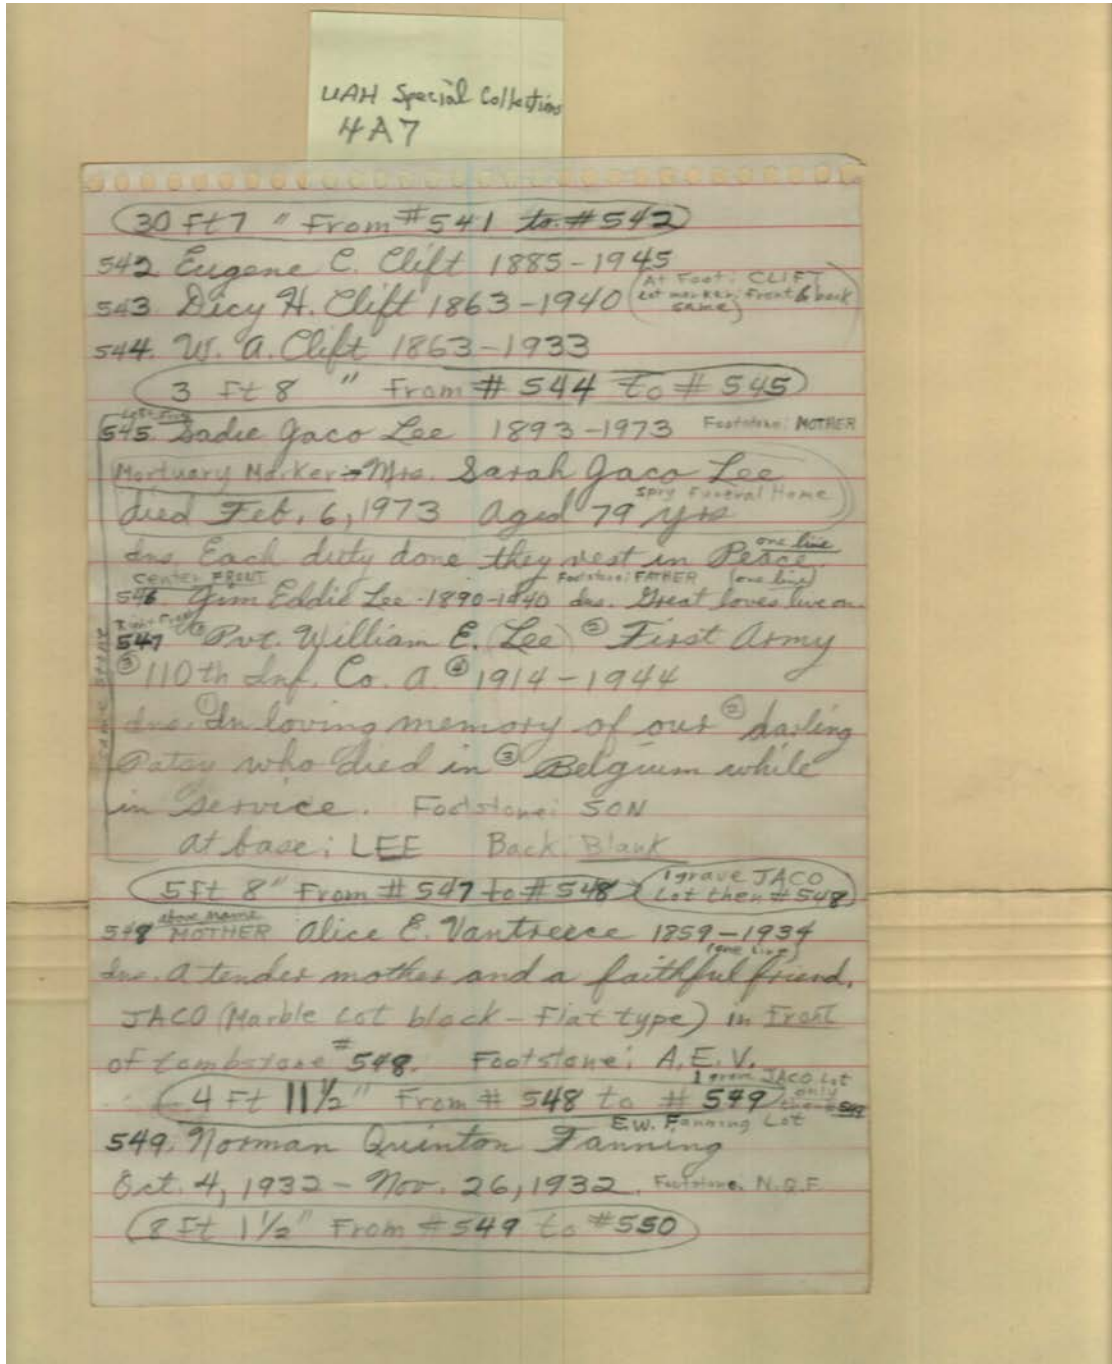 UAH Special Collections
4A7
30 Ft 7 " From #541 to #542
542 Eugene C. Clift 1885-1945
At Foot: CLIFT
543. Dicy H. Clift 1863-1940 (Lot marker: Front & back
same)
544. W. A. Clift 1863-1933
3 Ft 8 " From # 544 to # 545
Left Front
545. Sadie Jaco Lee 1893-1973 Footstone: MOTHER
Mortuary Marker → Mrs. Sarah Jaco Lee
Spry Funeral Home
died Feb. 6, 1973 Aged 79 yrs
one line
dns. Each duty done they rest in Peace.
Center FRONT Footstone: FATHER (one line)
546. Jim Eddie Lee - 1890-1940 dns. Great loves live on.
Right Front
547 ① Pvt. William E. (Lee) ② First Army
③ 110th Inf. Co. A. ④ 1914-1944
dns. ① In loving memory of our ② darling
Patsy who died in ③ Belgium while
in service. Footstone: SON
at base: LEE Back: Blank
same stone
5 Ft 8" From # 547 to # 548 (1 grave JACO
Lot then # 548)
above name
548 MOTHER Alice E. Vantreece 1859-1934
(one line)
dns. A tender mother and a faithful friend.
JACO (Marble Lot block - Flat type) in Front
of tombstone #548. Footstone: A.E.V.
1 grave JACO Lot
4 Ft 11½" From # 548 to # 549 only
then 549
E.W. Fanning Lot
549. Norman Quinton Fanning
Oct. 4, 1932 - Nov. 26, 1932. Footstone. N.Q.F.
(8 Ft 1½" From #549 to #550